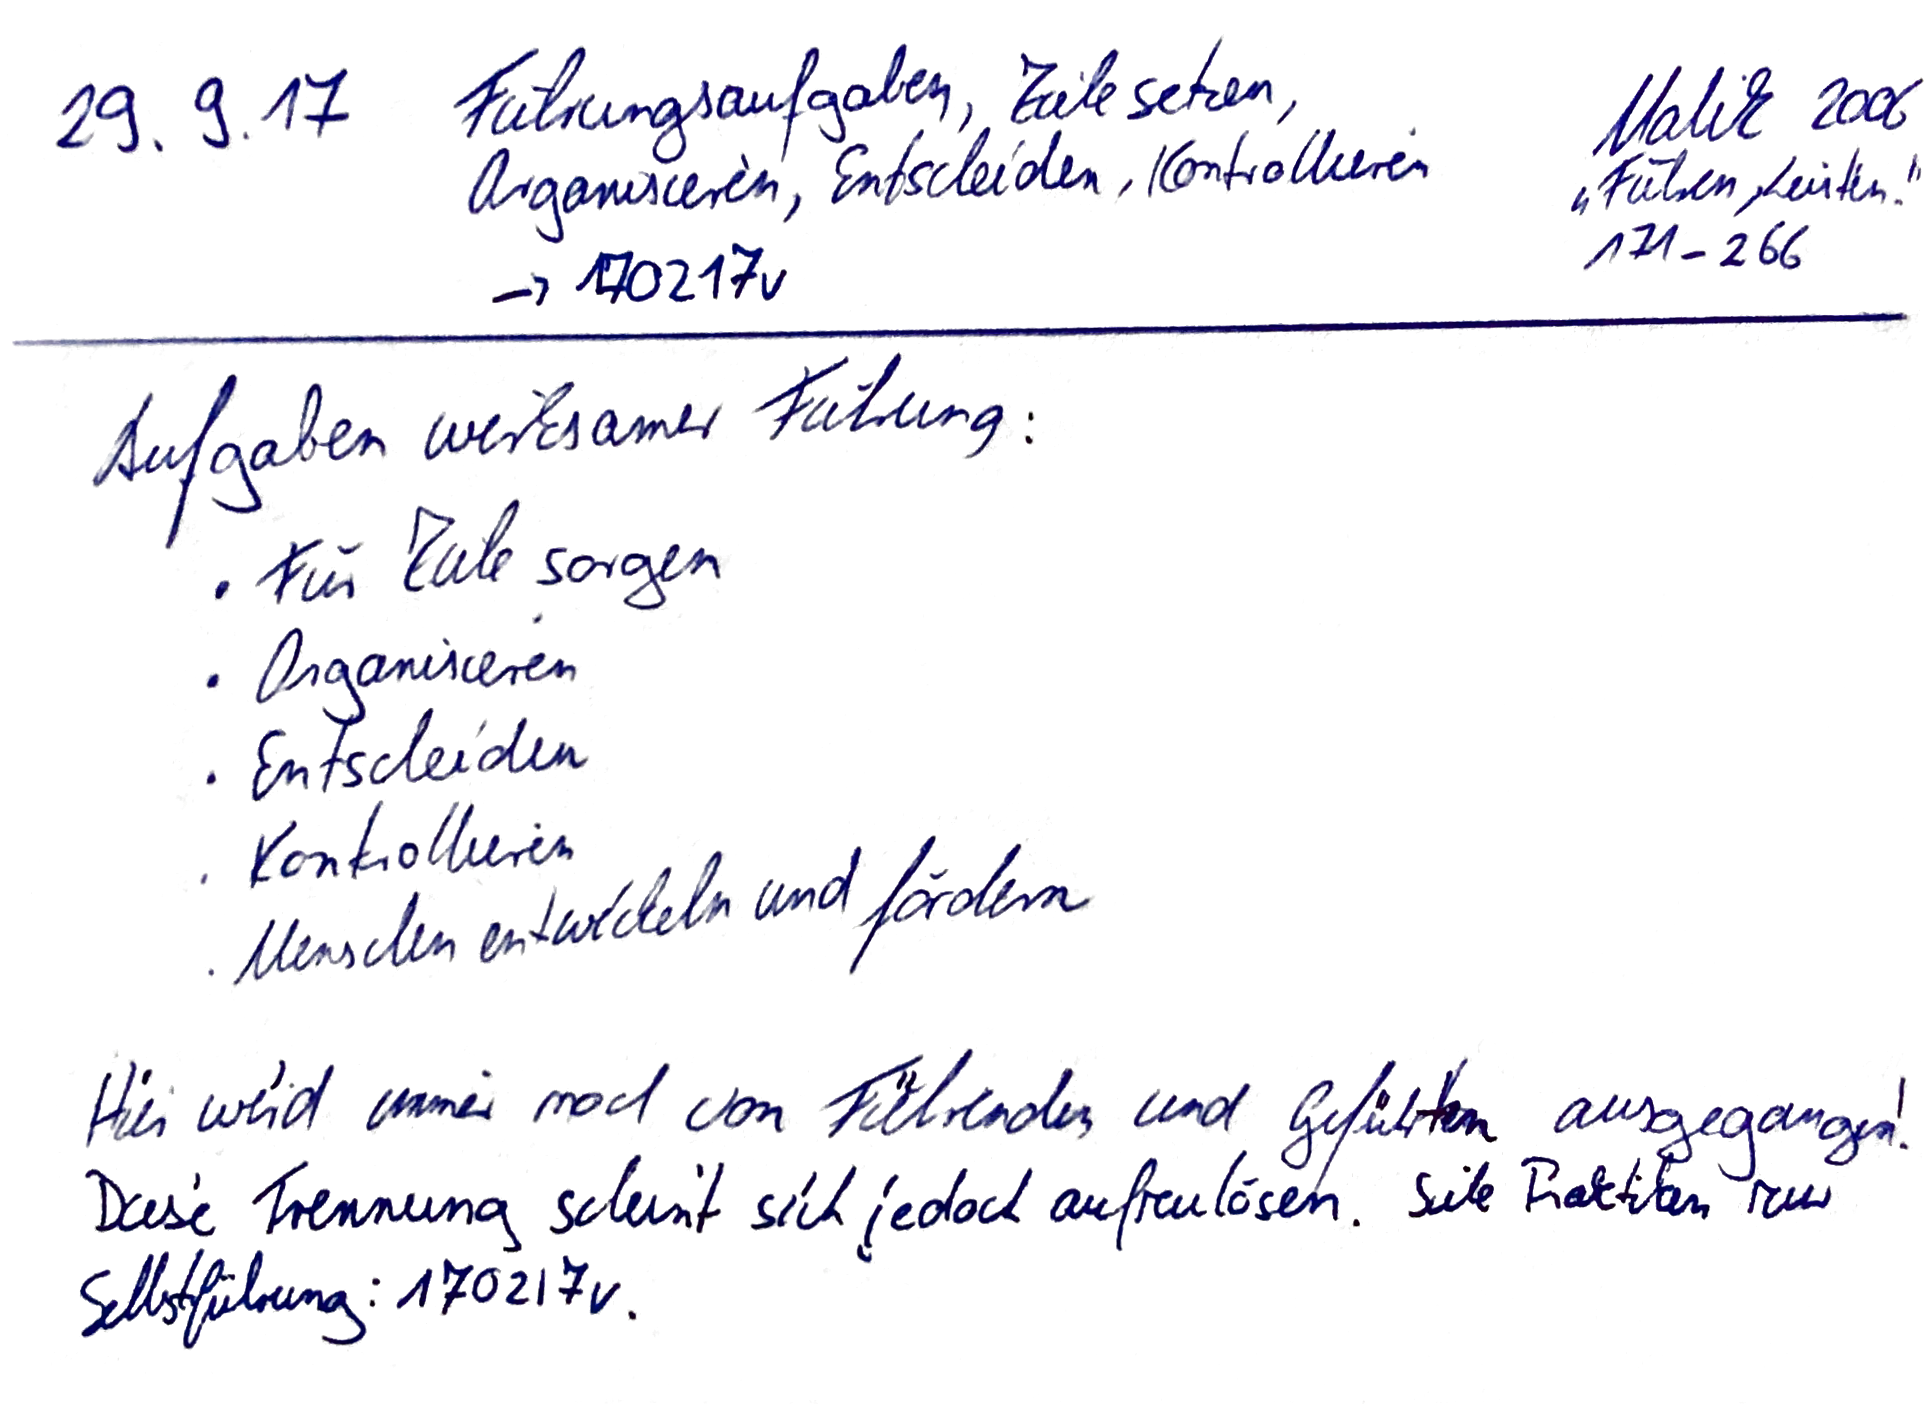 29.9.17 Führungsaufgaben, Ziele setzen, Malik 2006
Organisieren, Entscheiden, Kontrollieren "Führen, Leisten."
→ 170217v 171-266
Aufgaben wirksamer Führung:
• Für Ziele sorgen
• Organisieren
• Entscheiden
• Kontrollieren
• Menschen entwickeln und fördern
Hier wird immer noch von Führenden und Geführten ausgegangen!
Diese Trennung scheint sich jedoch aufzulösen. Siehe Praktiken zur
Selbstführung: 170217v.